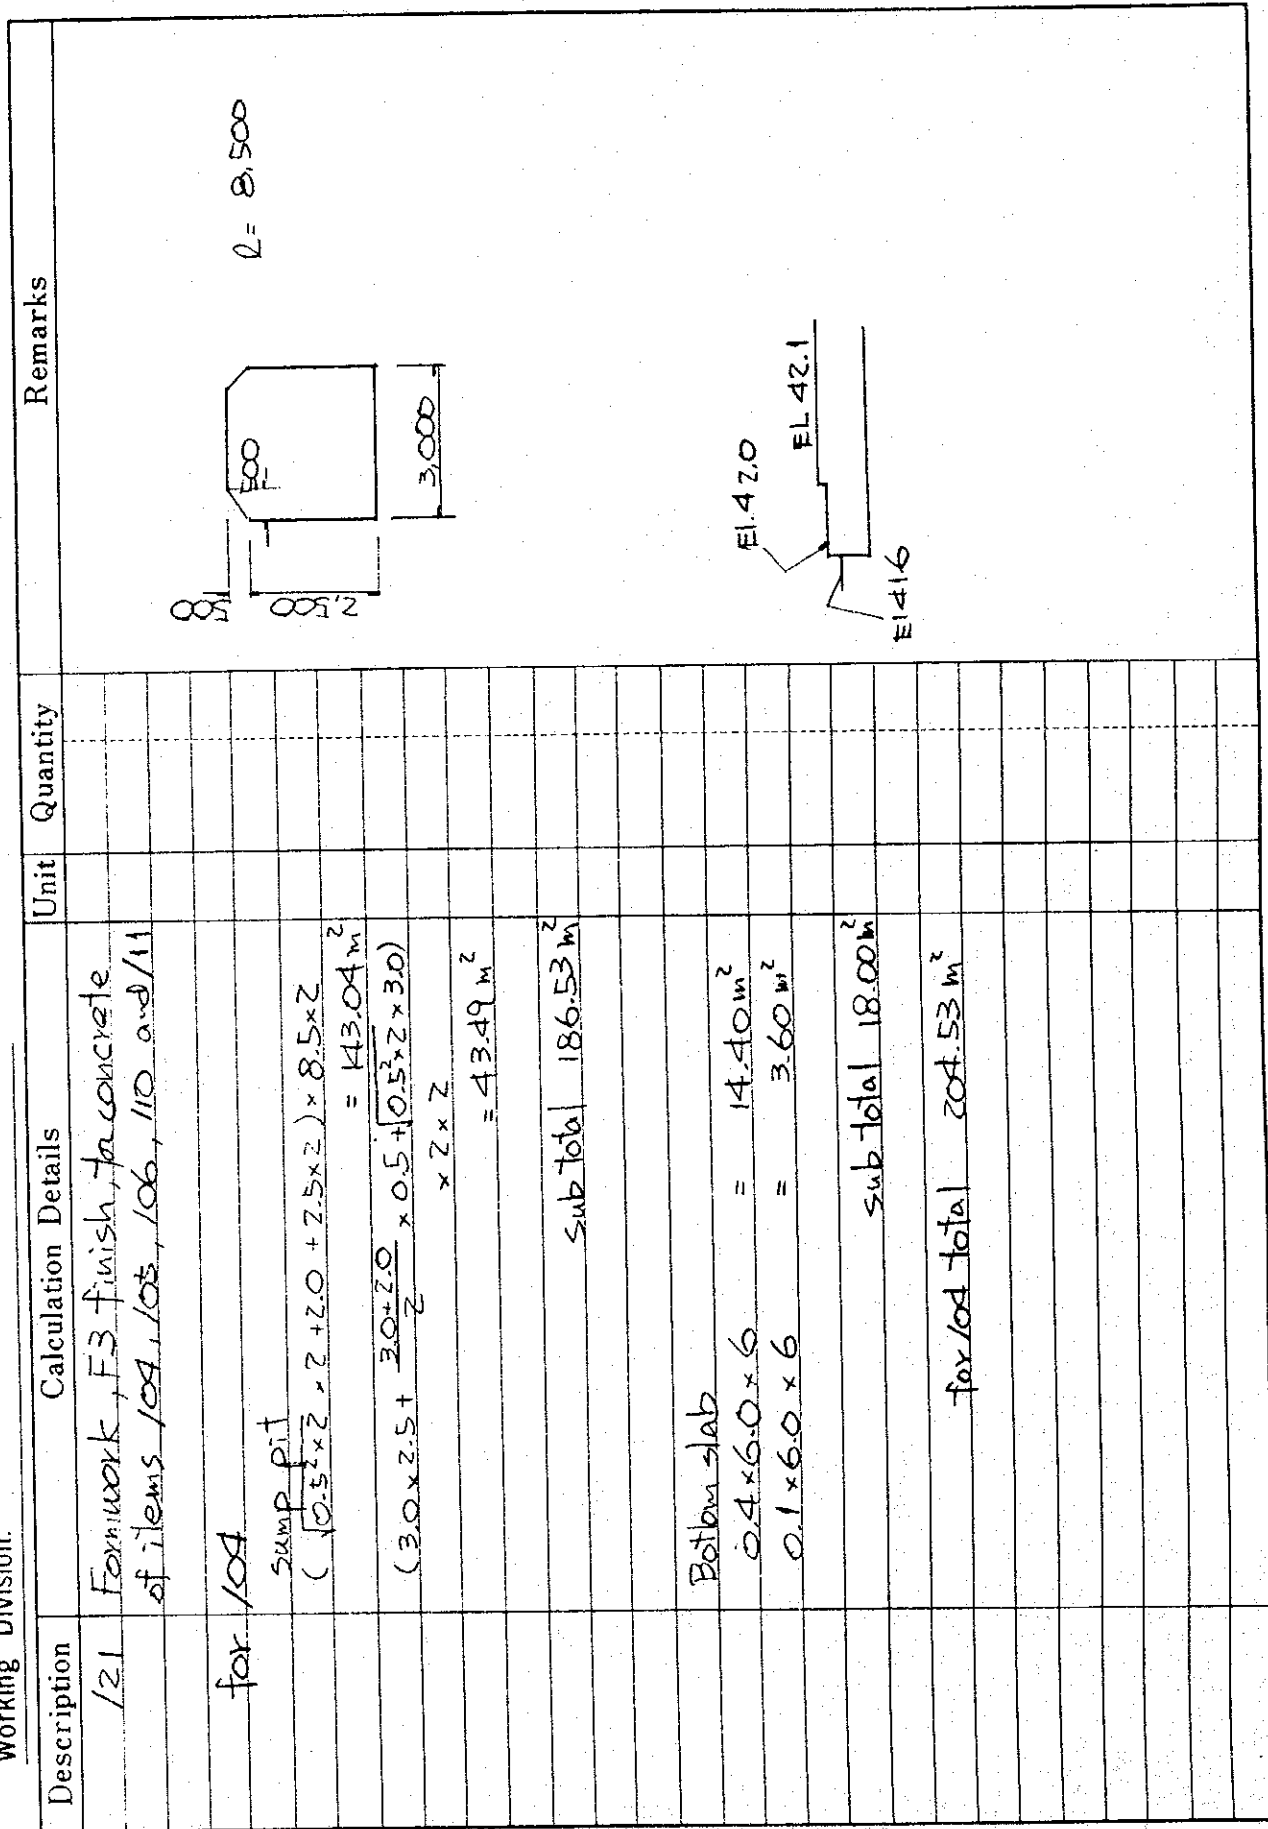 Working Division.
Description Calculation Details Unit Quantity Remarks
121 Formwork, F3 finish, for concrete
of items 104, 105, 106, 110 and 111
for 104
sump pit
(√0.5²×2 ×2 +2.0 +2.5×2) × 8.5×2
= 143.04 m²
(3.0 × 2.5 + 3.0+2.0/2 × 0.5 + √0.5²×2 × 3.0)
× 2 × 2
= 43.49 m²
sub total 186.53 m²
Bottom slab
0.4 × 6.0 × 6 = 14.40 m²
0.1 × 6.0 × 6 = 3.60 m²
sub total 18.00 m²
for 104 total 204.53 m²
500
500
2,500
3,000
ℓ= 8,500
El.42.0
EL 42.1
El 41.6